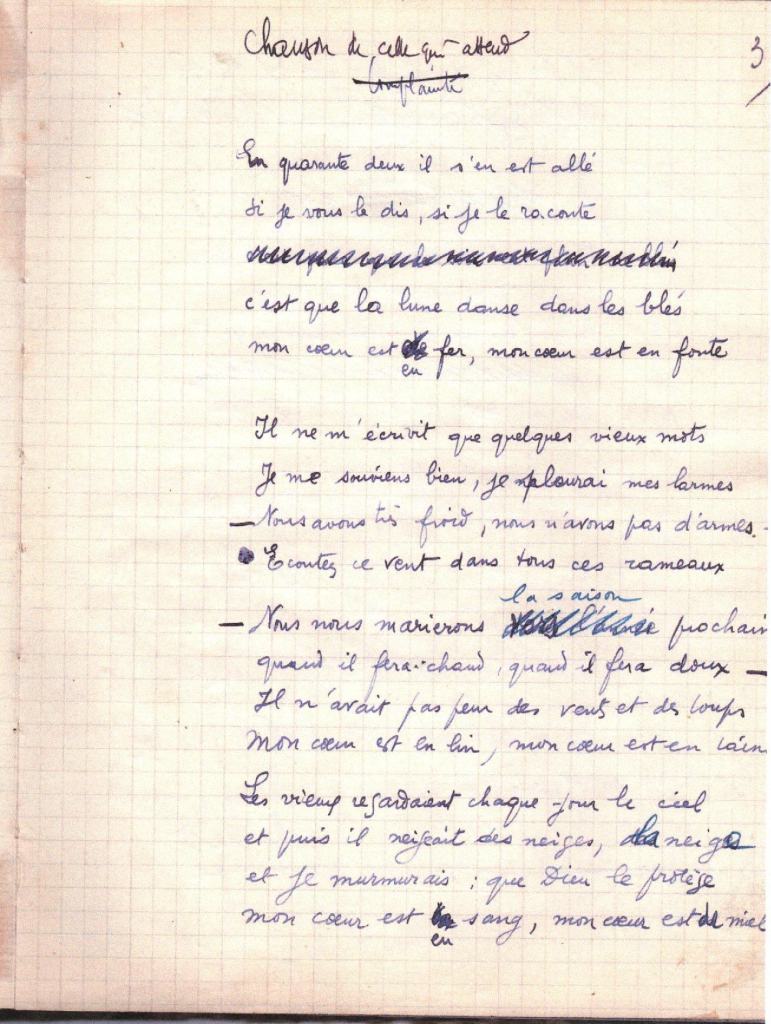 Chanson de celle qui attend
3
Complainte
En quarante deux il s'en est allé
si je vous le dis, si je le raconte
c'est que la lune danse dans les blés
mon cœur est en fer, mon cœur est en fonte
Il ne m'écrivit que quelques vieux mots
Je me souviens bien, je pleurai mes larmes
— Nous avons très froid, nous n'avons pas d'armes.
Ecoutez ce vent dans tous ces rameaux
la saison
— Nous nous marierons prochain
quand il fera chaud, quand il fera doux —
Il n'avait pas peur des vents et des loups
Mon cœur est en lin, mon cœur est en
Les vieux regardaient chaque jour le ciel
et puis il neigeait des neiges, neige
et je murmurais : que Dieu le protège
mon cœur est en sang, mon cœur est de miel